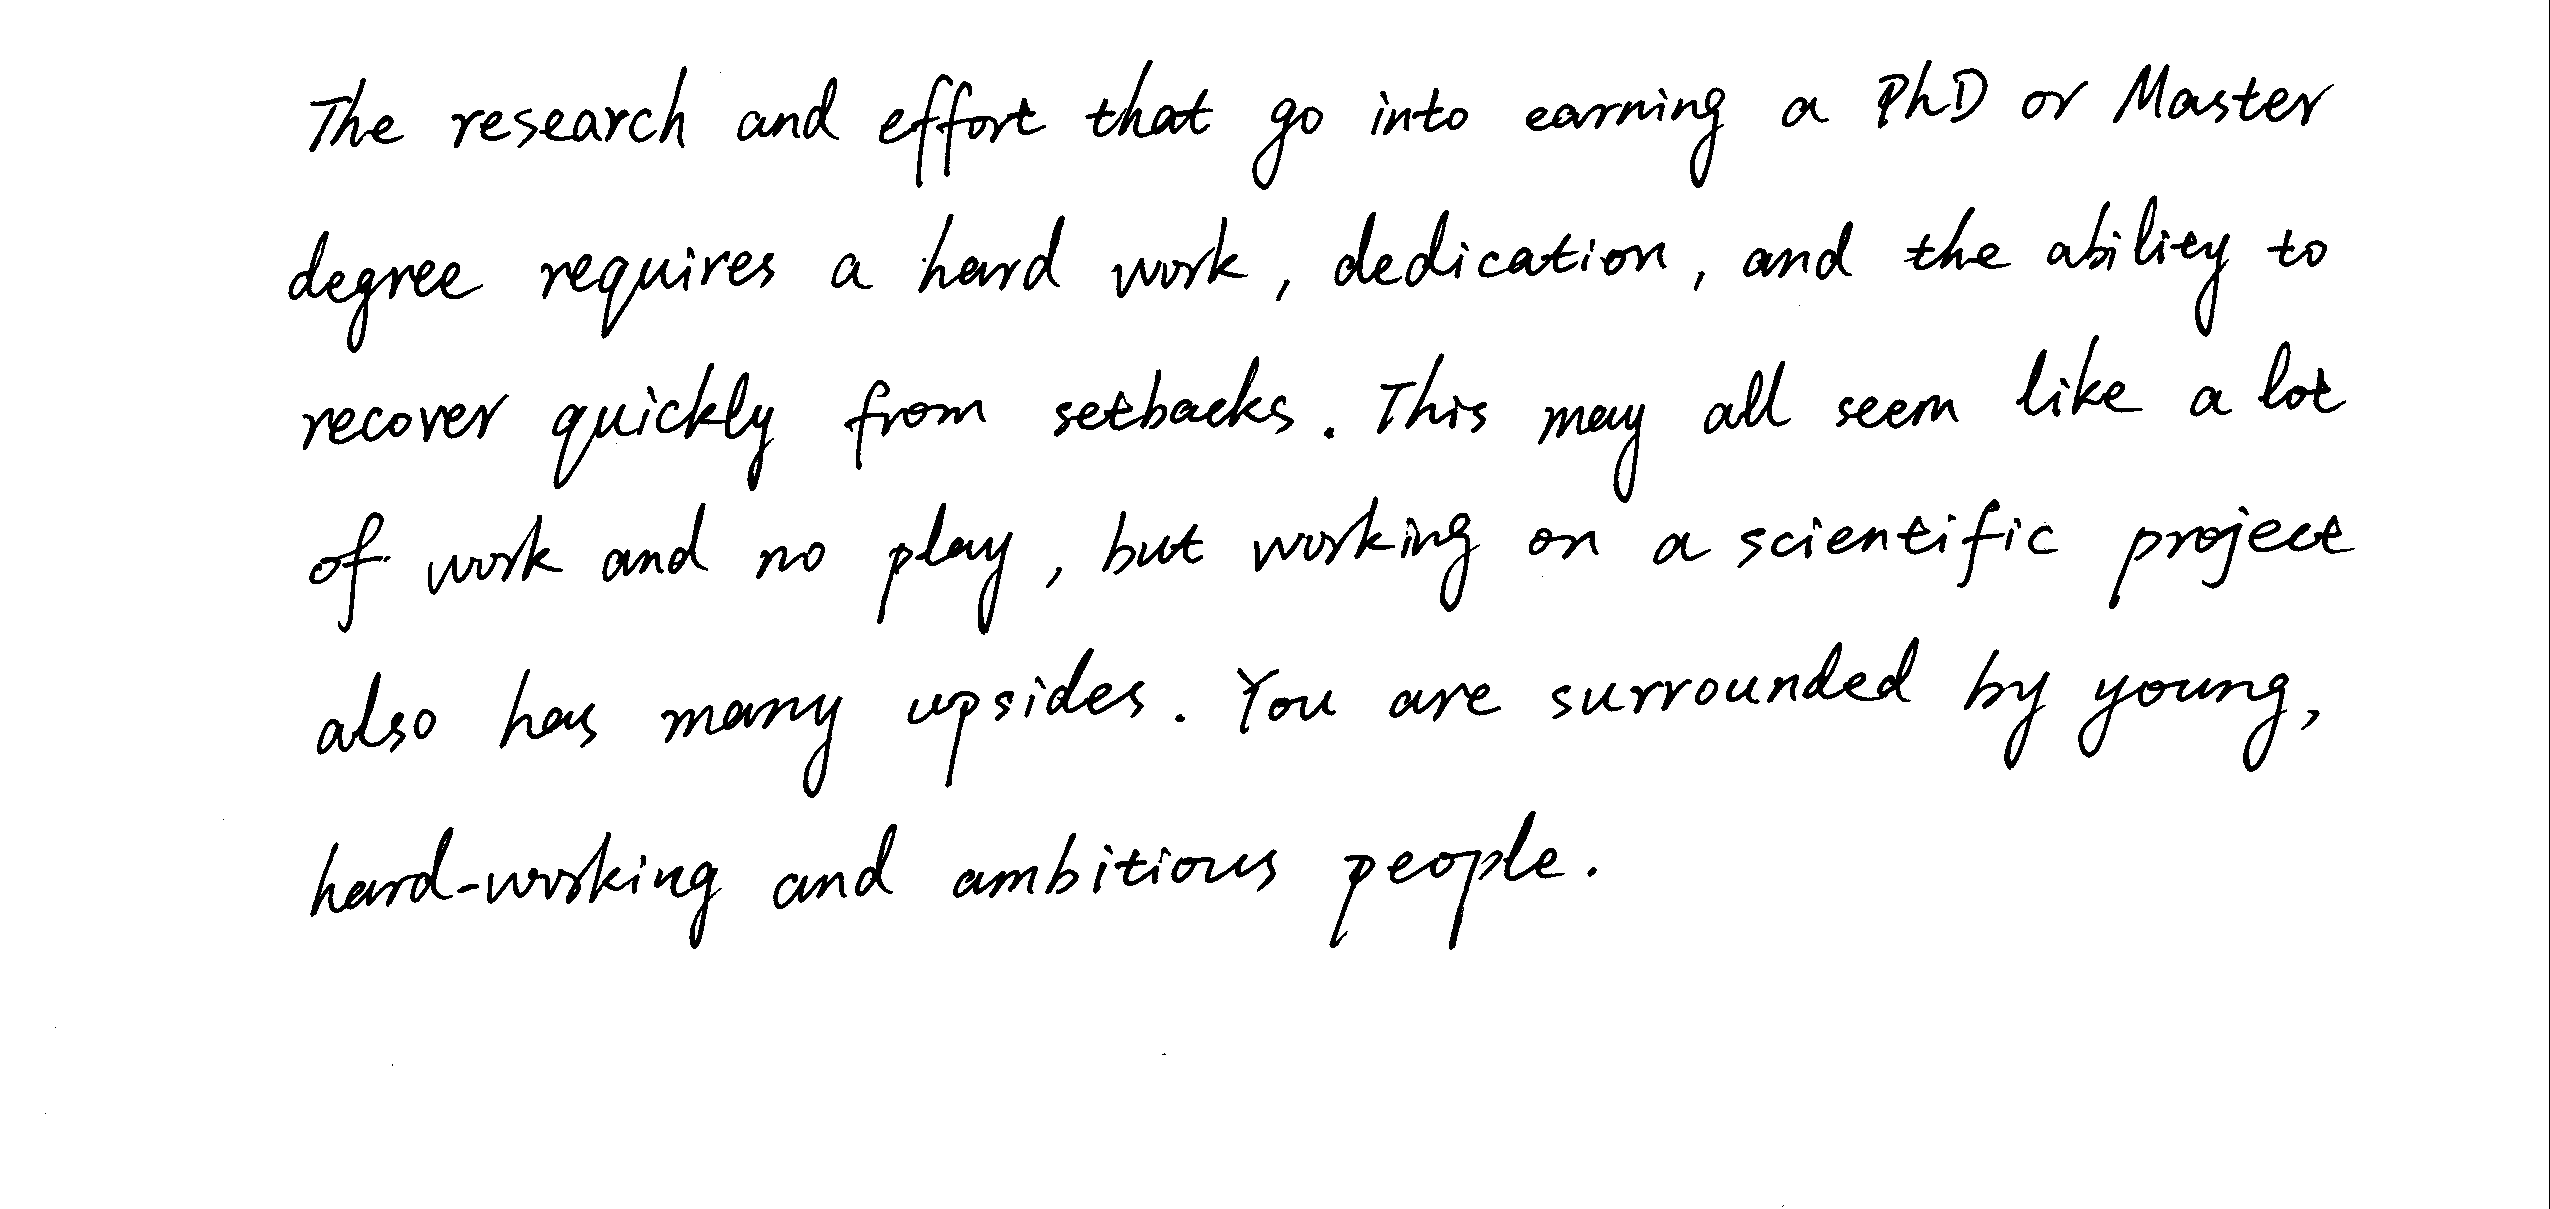 The research and effort that go into earning a PhD or Master
degree requires a hard work, dedication, and the ability to
recover quickly from setbacks. This may all seem like a lot
of work and no play, but working on a scientific project
also has many upsides. You are surrounded by young,
hard-working and ambitious people.